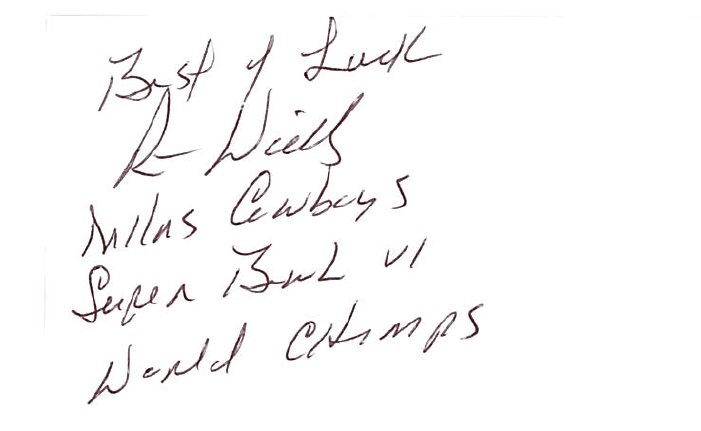 Best of Luck
Dallas Cowboys
Super Bowl VI
World CHAmps